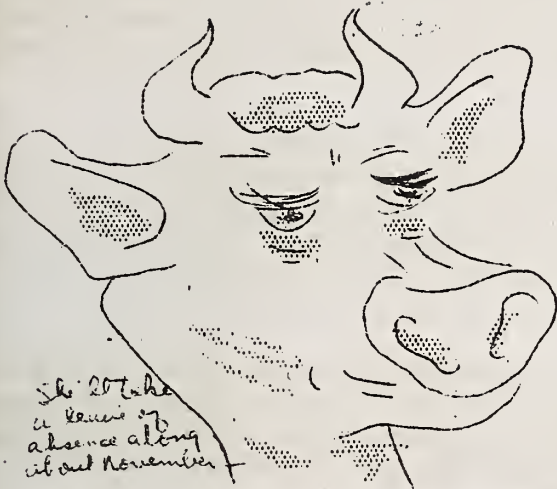 She'll take
a leave of
absence along
about November